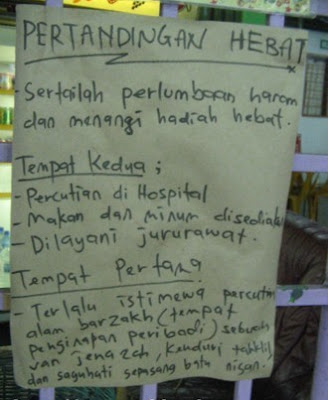 PERTANDINGAN HEBAT
- Sertailah perlumbaan haram
dan menangi hadiah hebat.
Tempat Kedua ;
- Percutian di Hospital
- Makan dan minum disediakan
- Dilayani jururawat.
Tempat Pertama
- Terlalu istimewa percutian
alam barzakh (tempat
penginapan peribadi) sebuah
van jenazah, kenduri tahlil
dan saguhati sepasang batu nisan.